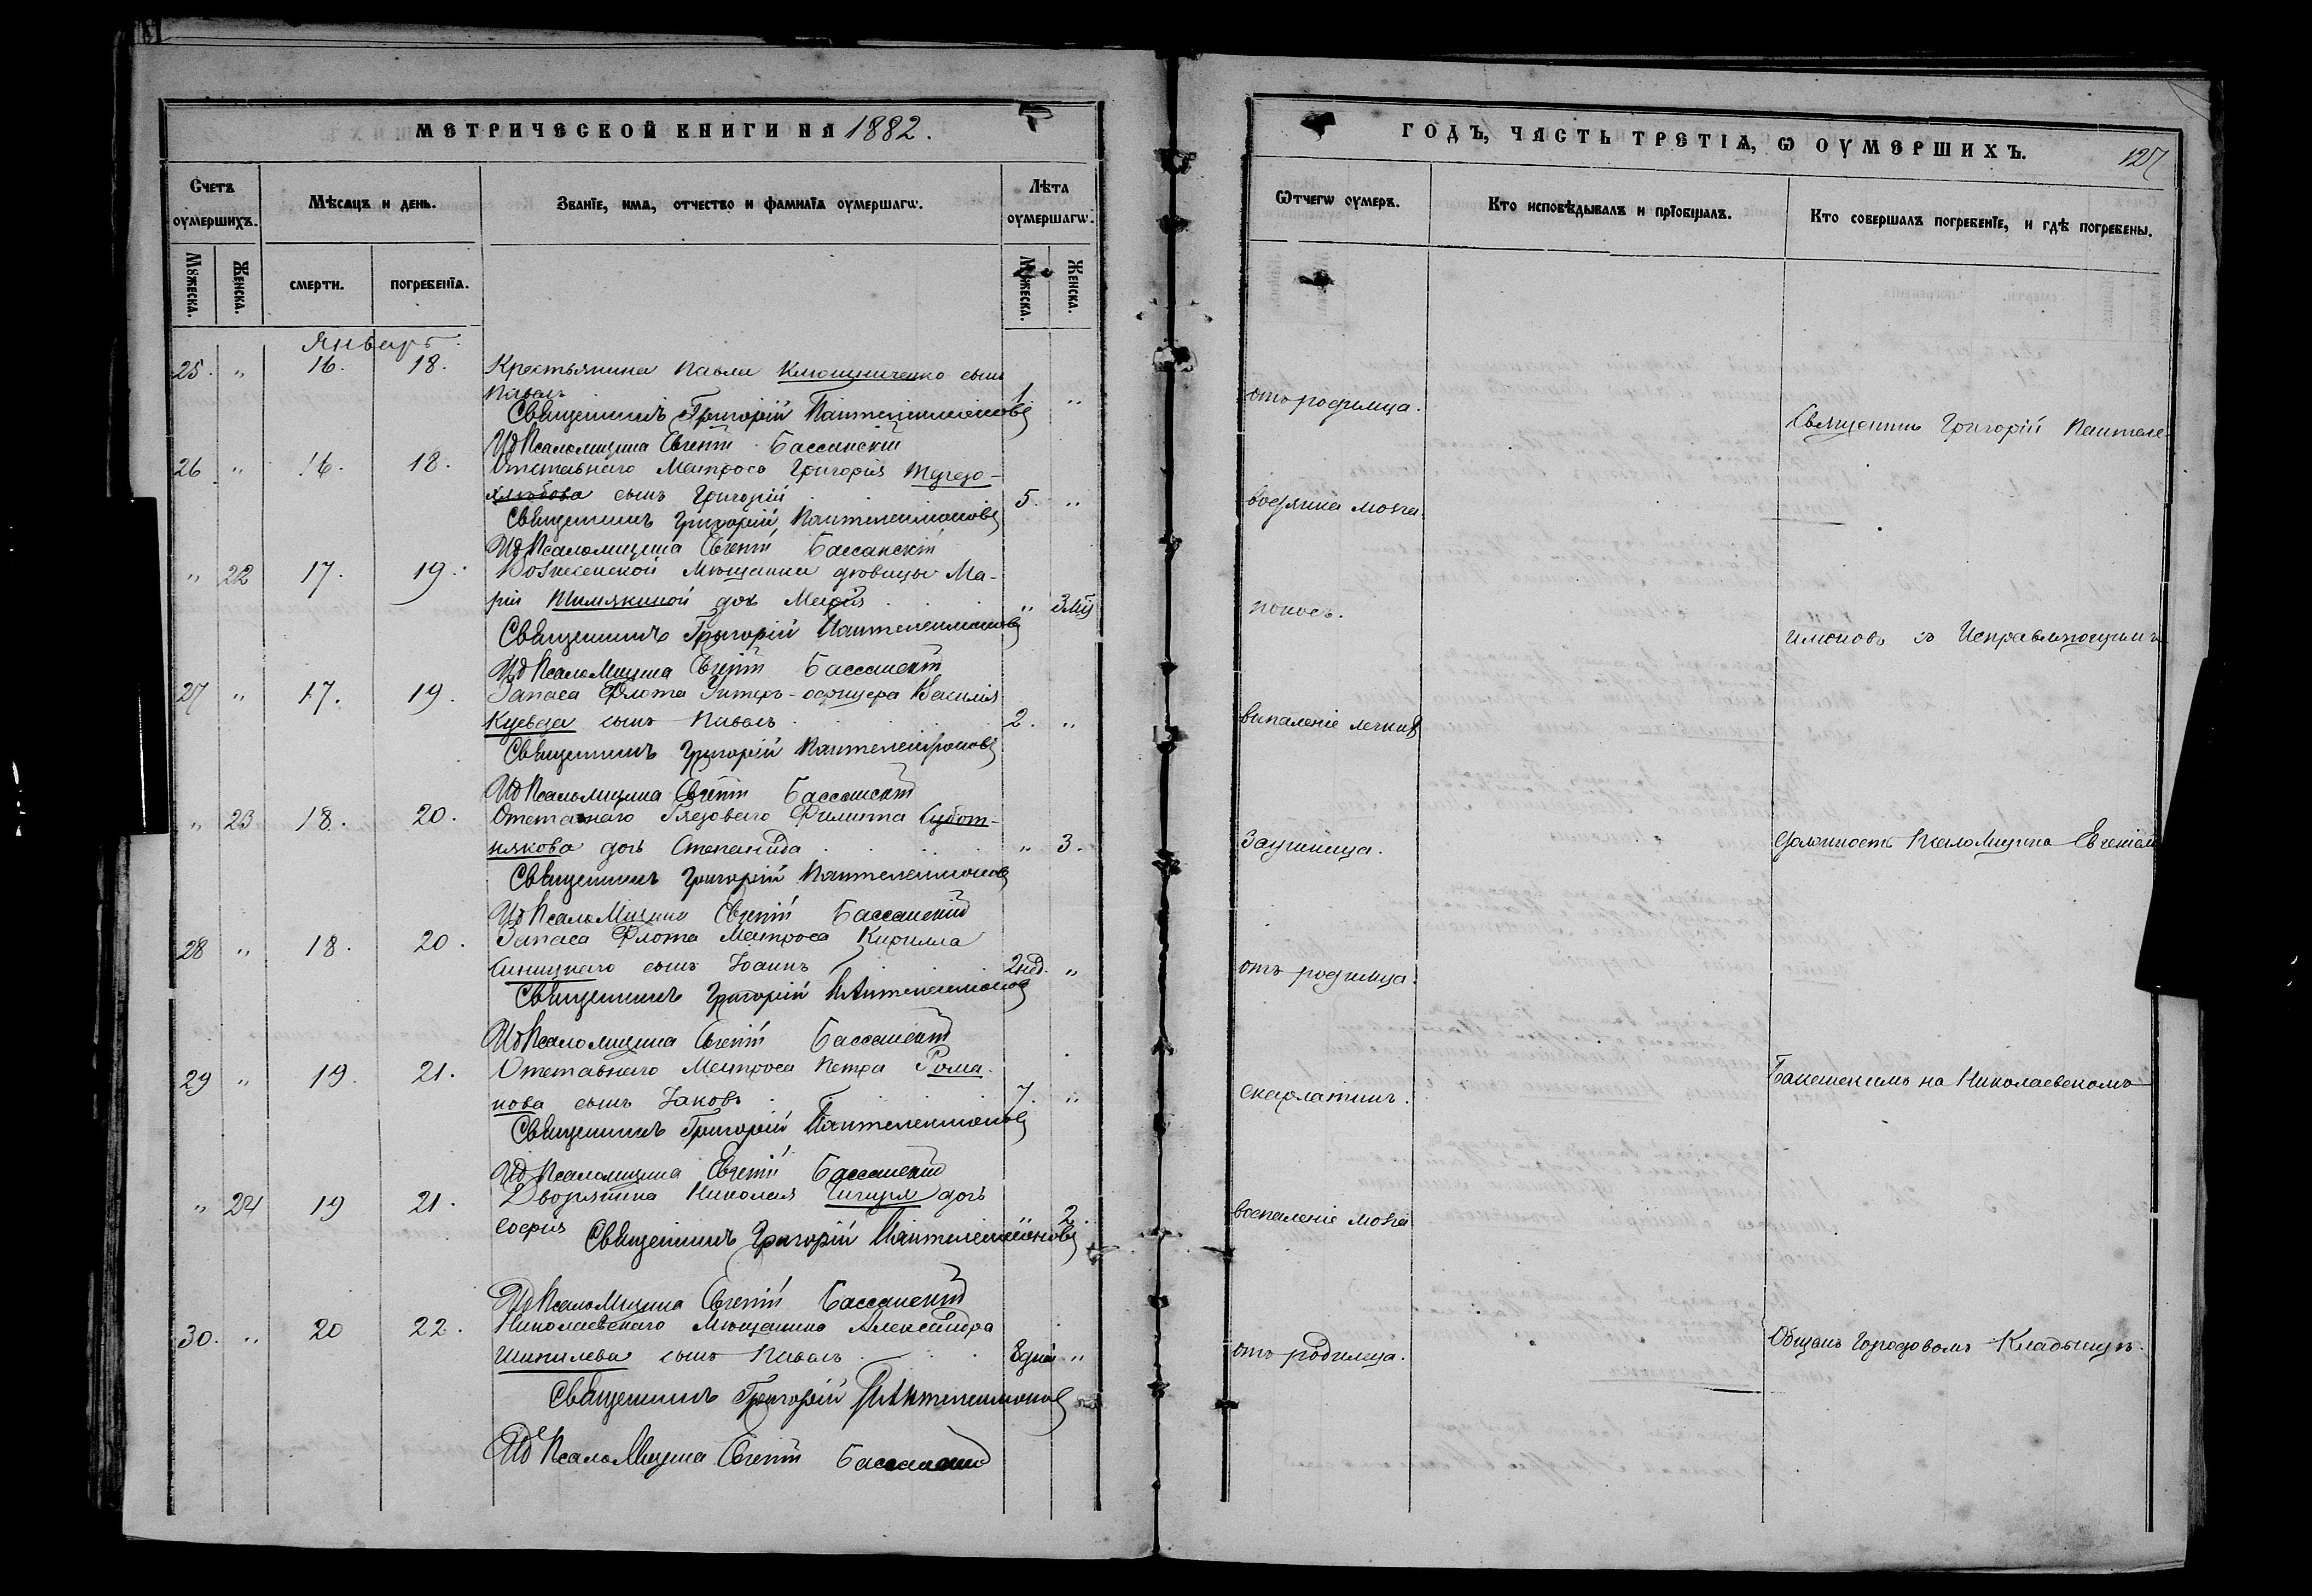 МЕТРИЧЕСКОЙ КНИГИ НА 1882.
Счетъ оумершихъ.
Мѣсяцъ и день.
Званїе, има, отчество и фамилїа оумершагѡ.
Лѣта оумершагѡ.
Мꙋжеска.
Женска.
смерти.
погребенїа.
Мꙋжеска.
Женска.
Январь.
25. " 16. 18. Крестьянина Павла Ключниченко сынъ
Павелъ 1 "
Священникъ Григорій Пантелеимоновъ
Ид Псаломщика Евгеній Бассанскій
26 " 16. 18. Отставнаго Матроса Григорія
сынъ Григорій 5. "
Священникъ Григорій Пантелеимоновъ
Ид Псаломщика Евгеній Бассанскій
" 22 17. 19. Вознесенской Мѣщанки дѣвицы Ма-
ріи Шимякиной дочь Марія " 3 мѣ
Священникъ Григорій Пантелеимоновъ
Ид Псаломщика Евгеній Бассанскій
27 " 17. 19. Запаса Флота Унтеръ-офицера Василія
сынъ Павелъ 2. "
Священникъ Григорій Пантелеимоновъ
Ид Псаломщика Евгеній Бассанскій
" 23 18. 20. Отставнаго Филиппа Субот-
някова дочь Степанида " 3.
Священникъ Григорій Пантелеимоновъ
Ид Псаломщика Евгеній Бассанскій
28 " 18. 20. Запаса Флота Матроса Кирилла
Синицкаго сынъ Іоаннъ 2 нед. "
Священникъ Григорій Пантелеимоновъ
Ид Псаломщика Евгеній Бассанскій
29 " 19. 21. Отставнаго Матроса Петра Рома-
нова сынъ Іаковъ 7. "
Священникъ Григорій Пантелеимоновъ
Ид Псаломщика Евгеній Бассанскій
" 24 19 21. Дворянина Николая Чигиря дочь
Софія " 2.
Священникъ Григорій Пантелеимоновъ
Ид Псаломщика Евгеній Бассанскій
30. " 20 22. Николаевскаго Мѣщанина Александра
Шипилева сынъ Павелъ 8 дней "
Священникъ Григорій Пантелеимоновъ
Ид Псаломщика Евгеній Бассанскій
ГОДЪ, ЧАСТЬ ТРЕТІѦ, Ѡ ОУМЕРШИХЪ.
127
Ѿчегѡ оумеръ.
Кто исповѣдывалъ и прїобщалъ.
Кто совершалъ погребенїе, и гдѣ погребены.
отъ родимца.
Священникъ Григорій Пантеле-
водянка мозга.
поносъ.
имоновъ съ Исправляющимъ
воспаленіе легкихъ
Заушница.
должность Псаломщика Евгеніемъ
отъ родимца.
Бассанскимъ на Николаевскомъ
скарлатина.
воспаленіе мозга
отъ родимца.
Общемъ Городовомъ Кладбищѣ.